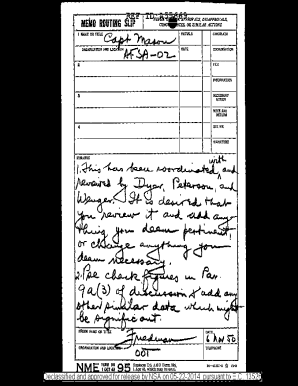 REF ID:A
MEMO ROUTING SLIP
NEVER USE FOR APPROVALS, DISAPPROVALS,
CONCURRENCES, OR SIMILAR ACTIONS
1 NAME OR TITLE
INITIALS
CIRCULATE
Capt Mason
ORGANIZATION AND LOCATION
DATE
COORDINATION
AFSA-02
2
FILE
INFORMATION
3
NECESSARY
ACTION
NOTE AND
RETURN
4
SEE ME
SIGNATURE
REMARKS
1. This has been coordinated with, and
reviewed by Dyer, Peterson, and
Wenger. It is desired that
you review it and add any-
thing you deem pertinent,
or change anything you
deem necessary.
2. Pse check figures in Par.
9a(3) of discussion & add any
other similar data which might
be significant.
FROM NAME OR TITLE
DATE
Friedman
ORGANIZATION AND LOCATION
TELEPHONE
001
NME 95
Declassified and approved for release by NSA on 05-22-2014 pursuant to E.O. 13526